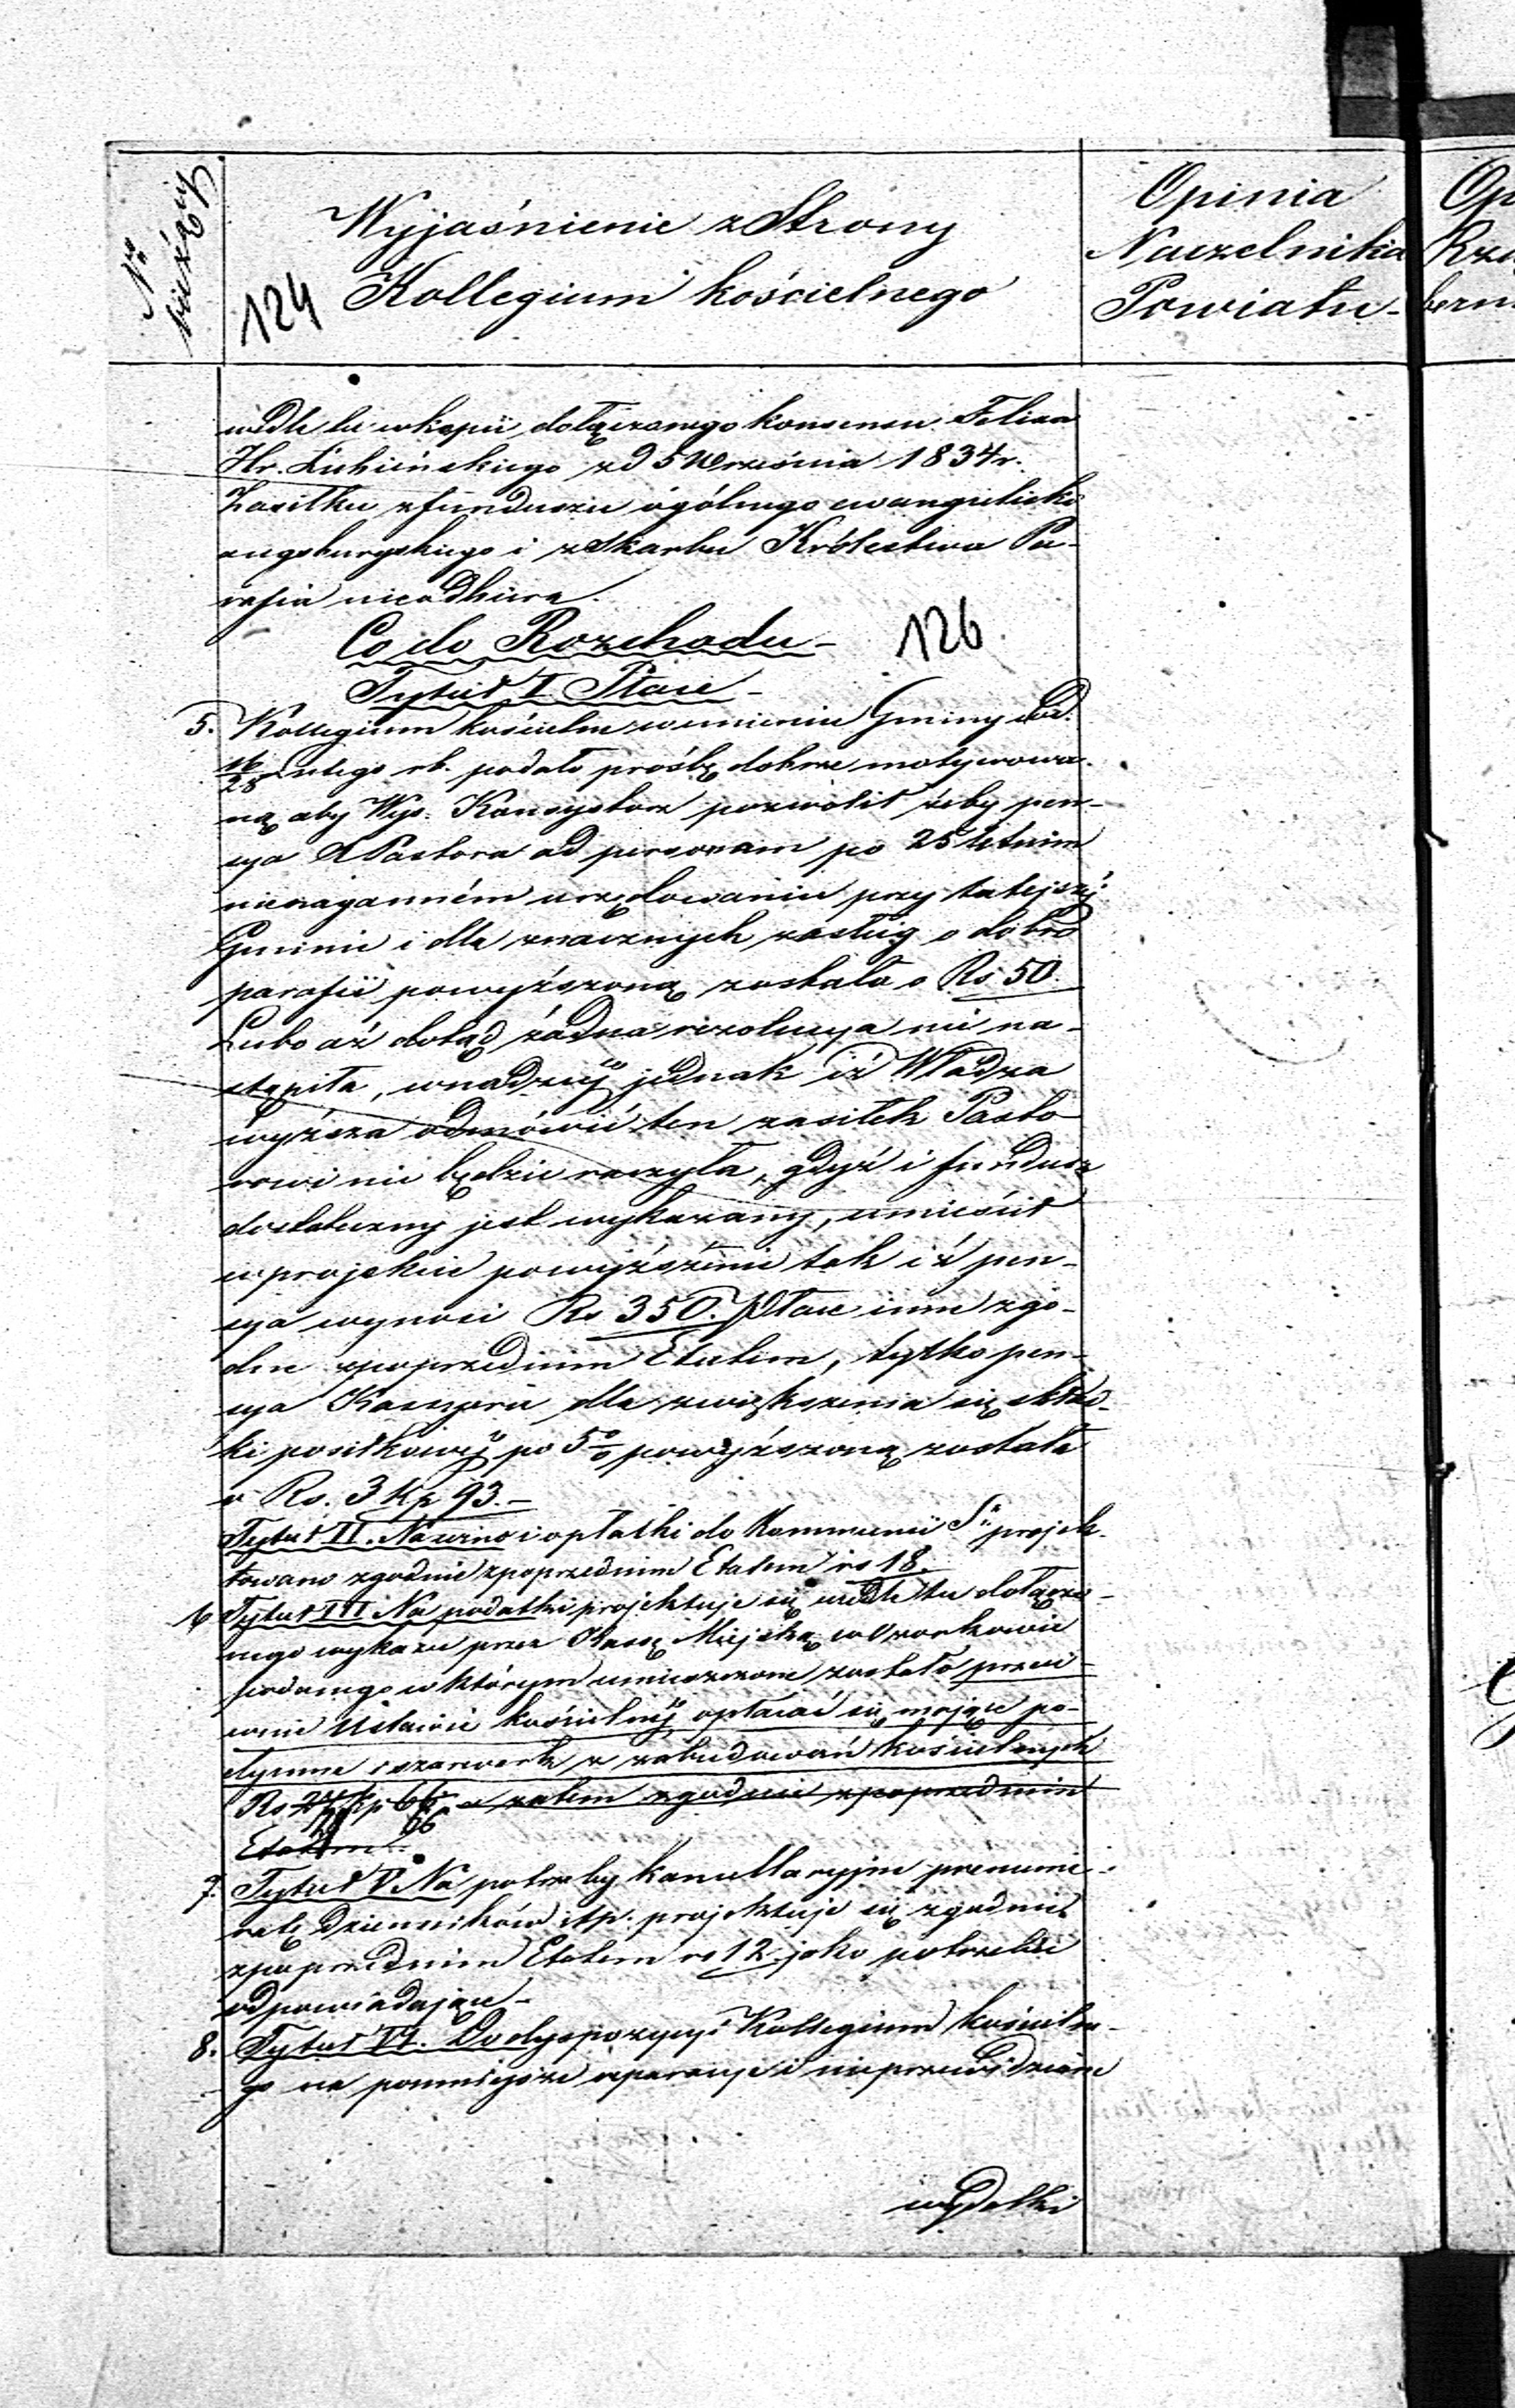 No bieżący
Wyjaśnienie z Strony
Kollegium kościelnego
124
Opinia
Naczelnika
Powiatu -
Op
Rzą
bern
wedle tu w kopii dołączonego konsensu Felixa
Hr. Łubieńskiego z d 5 Września 1834 r.
Zasiłku z funduszu ogólnego ewangelicko
augsburgskiego i z Skarbu Królestwa Pa-
rafia nieodbiera.
Co do Rozchodu -
126.
Tytuł I. Płace -
5. Kollegium kościelne w imieniu Gminy dd.
16/28 lutego rb. podało prośbę dobrze motywowa-
ną aby Wys. Konsystorz pozwolił żeby pen-
sya Pastora ad personam po 25 letnim
nienaganném urzędowaniu przy tutejszéj
Gminie i dla znacznych zasług o dobro
parafii powyższoną została o Rs 50.
Lubo aż dotąd żadna rezolucya nie na-
stąpiła, w nadziéj jednak iż Władza
wyższa odmówić ten zasiłek Pasto
rowi nie będzie raczyła, gdyż i fundusz
dostateczny jest wykazany, umieścił
w projekcie powyższenie tak iż pen-
sya wynosi Rs 350. Płace inne zgo-
dne z poprzednim Etatem, tylko pen-
sya Kassyera dla zwiększenia się skład-
ki posiłkowéj po 5% powyższoną została
o Rs. 3 kp 93. -
Tytuł II. Na wino i opłatki do Kommunii Sej projek-
towano zgodnie z poprzednim Etatem rs 18.
6 Tytuł III Na podatki projektuje się wedle tu dołączo-
nego wykazu przez Kassę Miejską w Ozorkowie
podanego w którym umieszczone zostało przeci-
wnie Ustawie kościelnéj opłacać się mające po-
dymne i szarwark z zabudowań kościelnych
Rs kp 66 a zatem zgodnie z poprzednim
66
Etatem.
7. Tytuł V Na potrzeby kancellaryjne prenume-
ratę Dzienników itp. projektuje się zgodnie
z poprzednim Etatem rs 12. jako potrzebie
odpowiadające -
8. Tytuł VI. Do dyspozycyi Kollegium kościelne-
go na pomniejsze reparacye i nieprzewidziane
wydatki